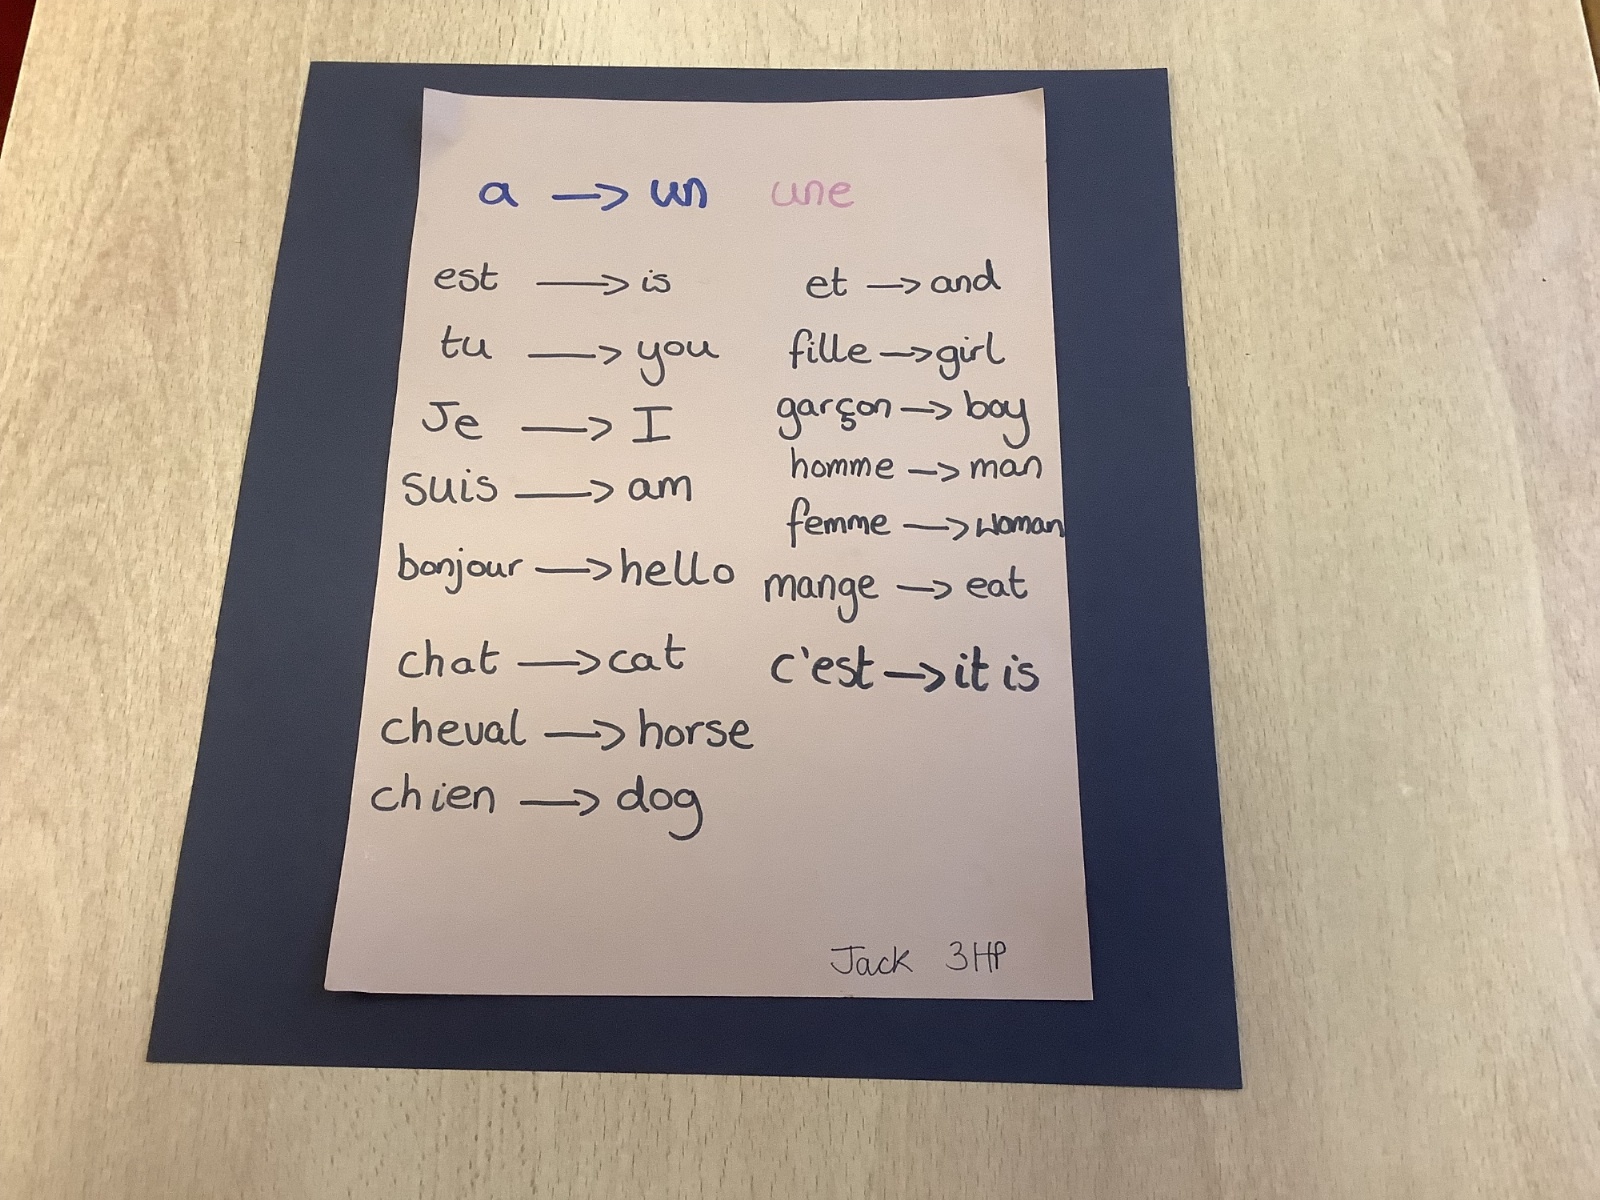 a → un une
est → is
tu → you
Je → I
suis → am
bonjour → hello
chat → cat
cheval → horse
chien → dog
et → and
fille → girl
garçon → boy
homme → man
femme → woman
mange → eat
c'est → it is
Jack 3HP